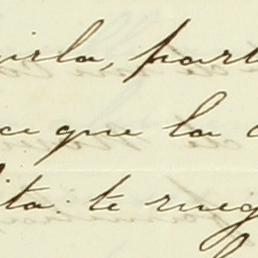 irla, part
ce que la
ita. te rueg